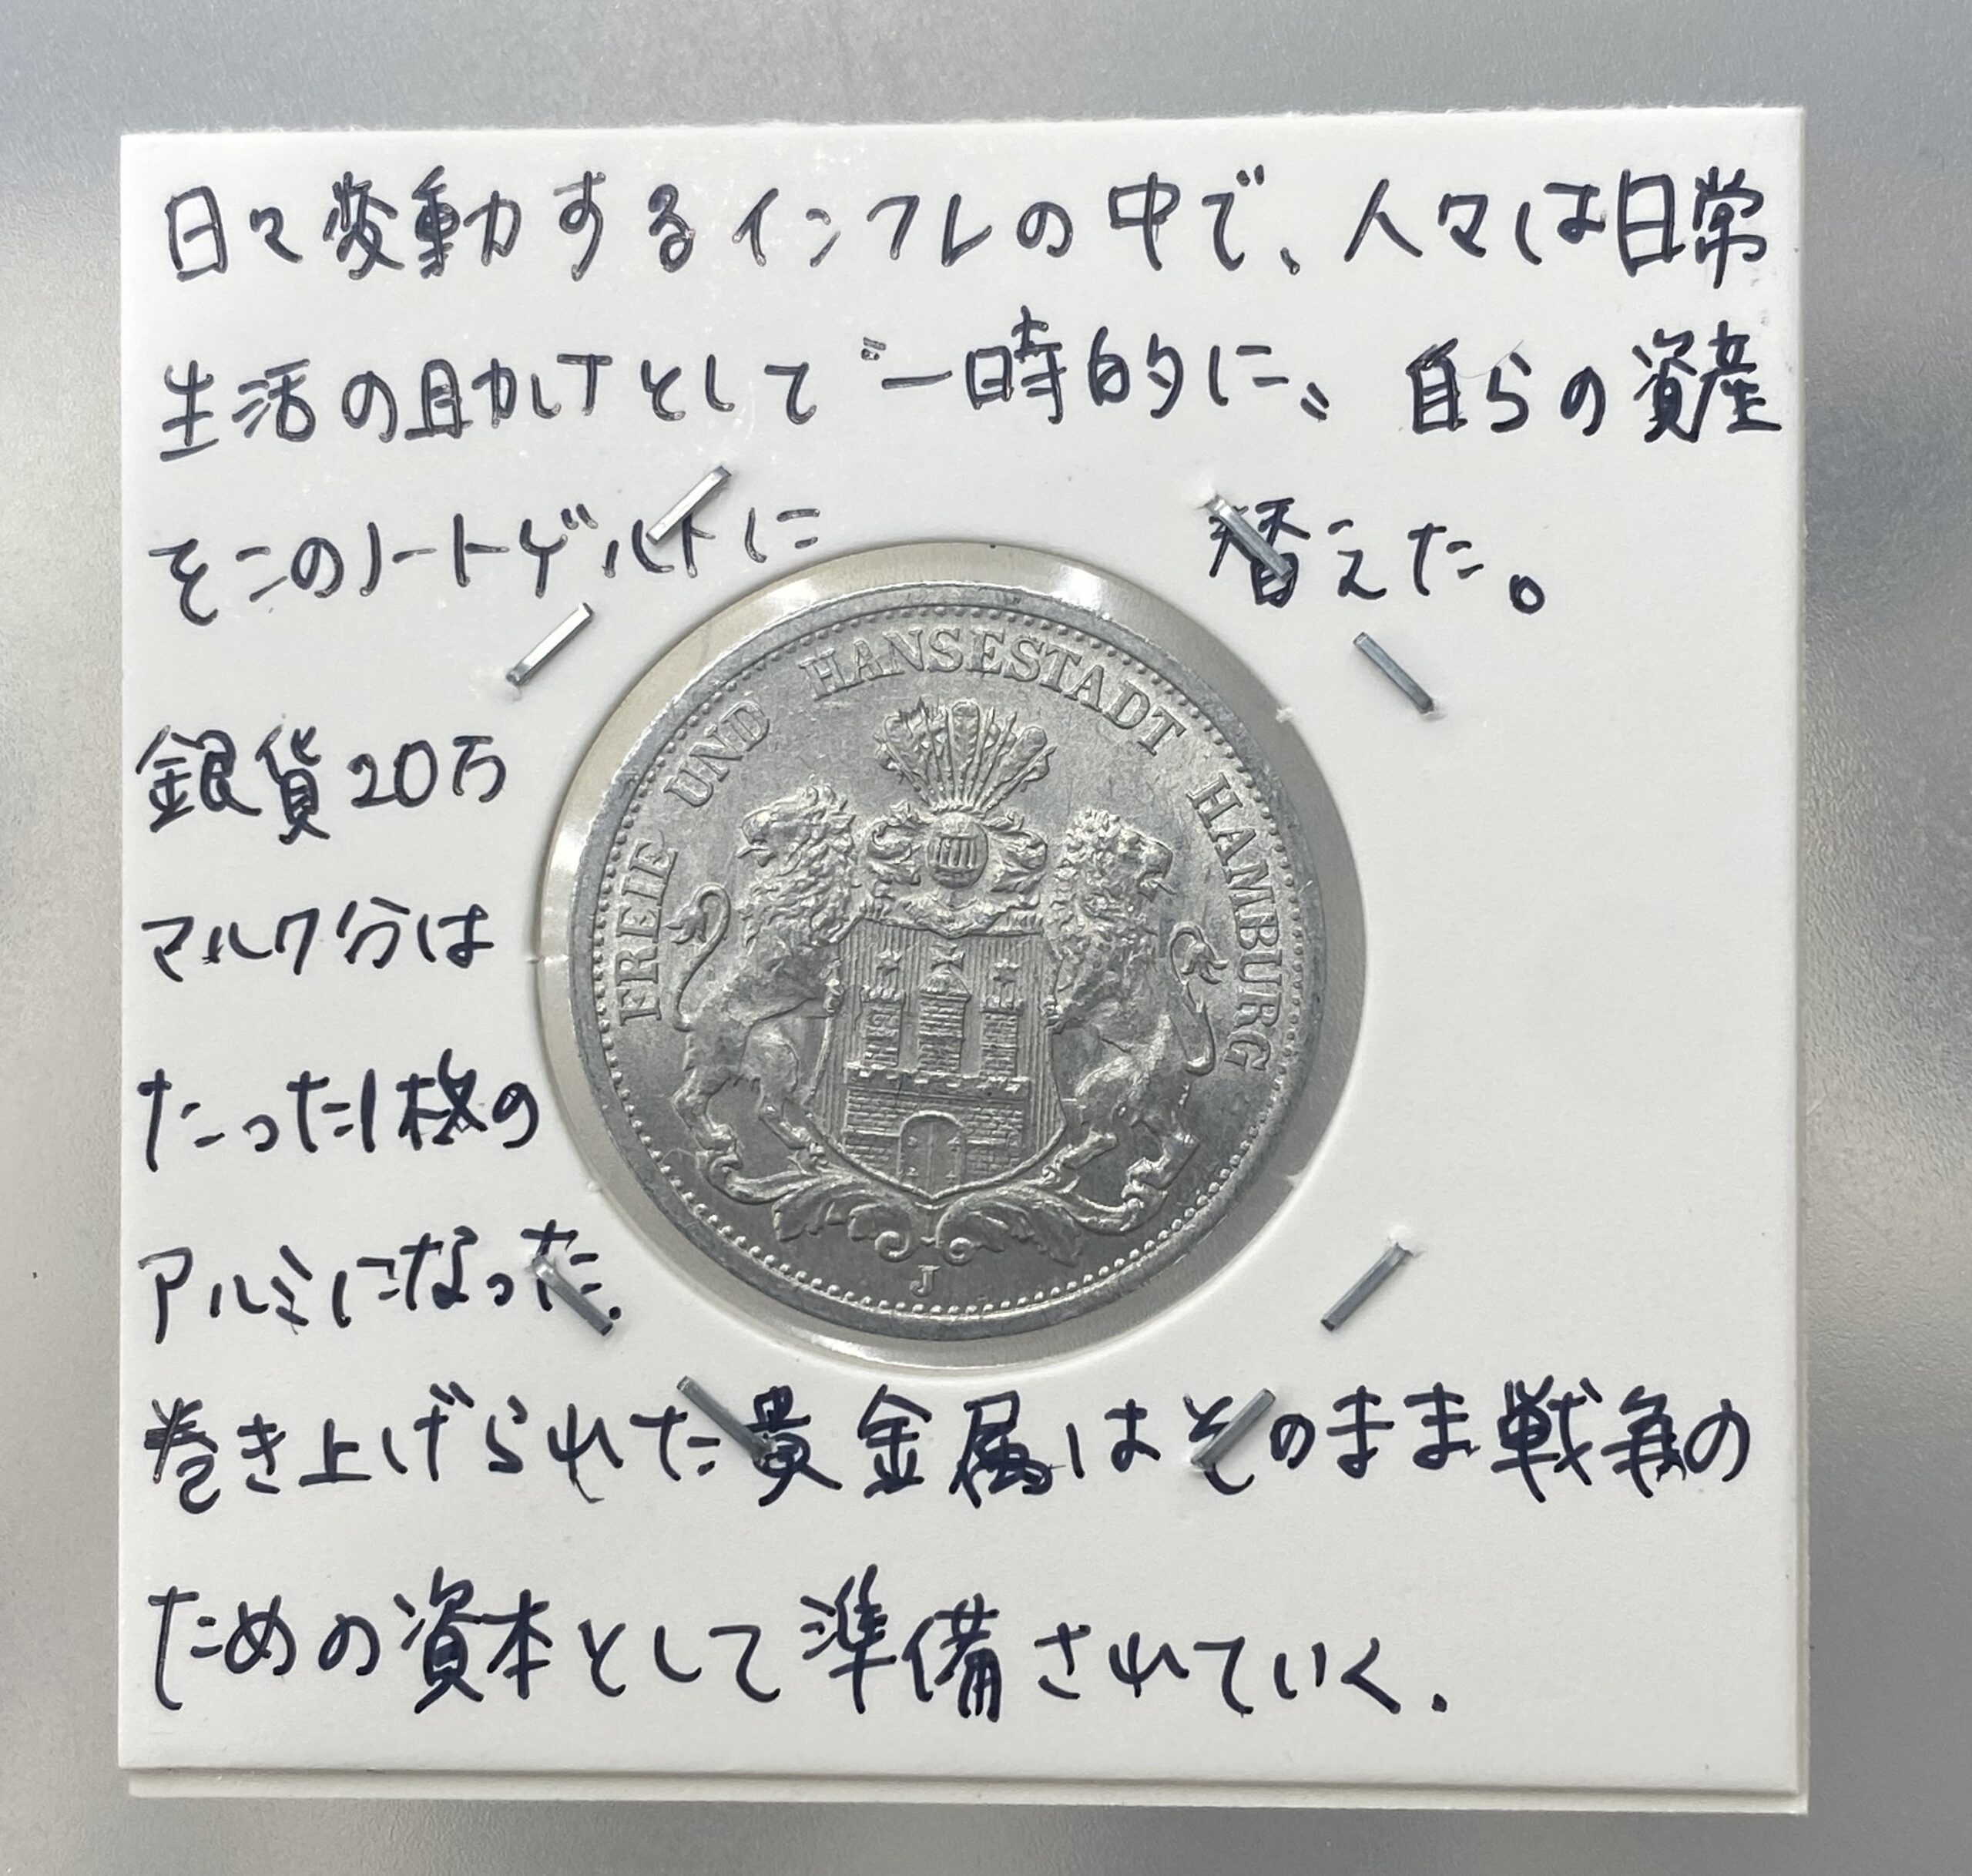 日々変動するインフレの中で、人々は日常
生活の助けとして〝一時的に〟自らの資産
をこのノートゲルトに 替えた。
銀貨20万
マルク分は
たった1枚の
アルミになった.
巻き上げられた貴金属はそのまま戦争の
ための資本として準備されていく.
FREIE UND HANSESTADT HAMBURG
J